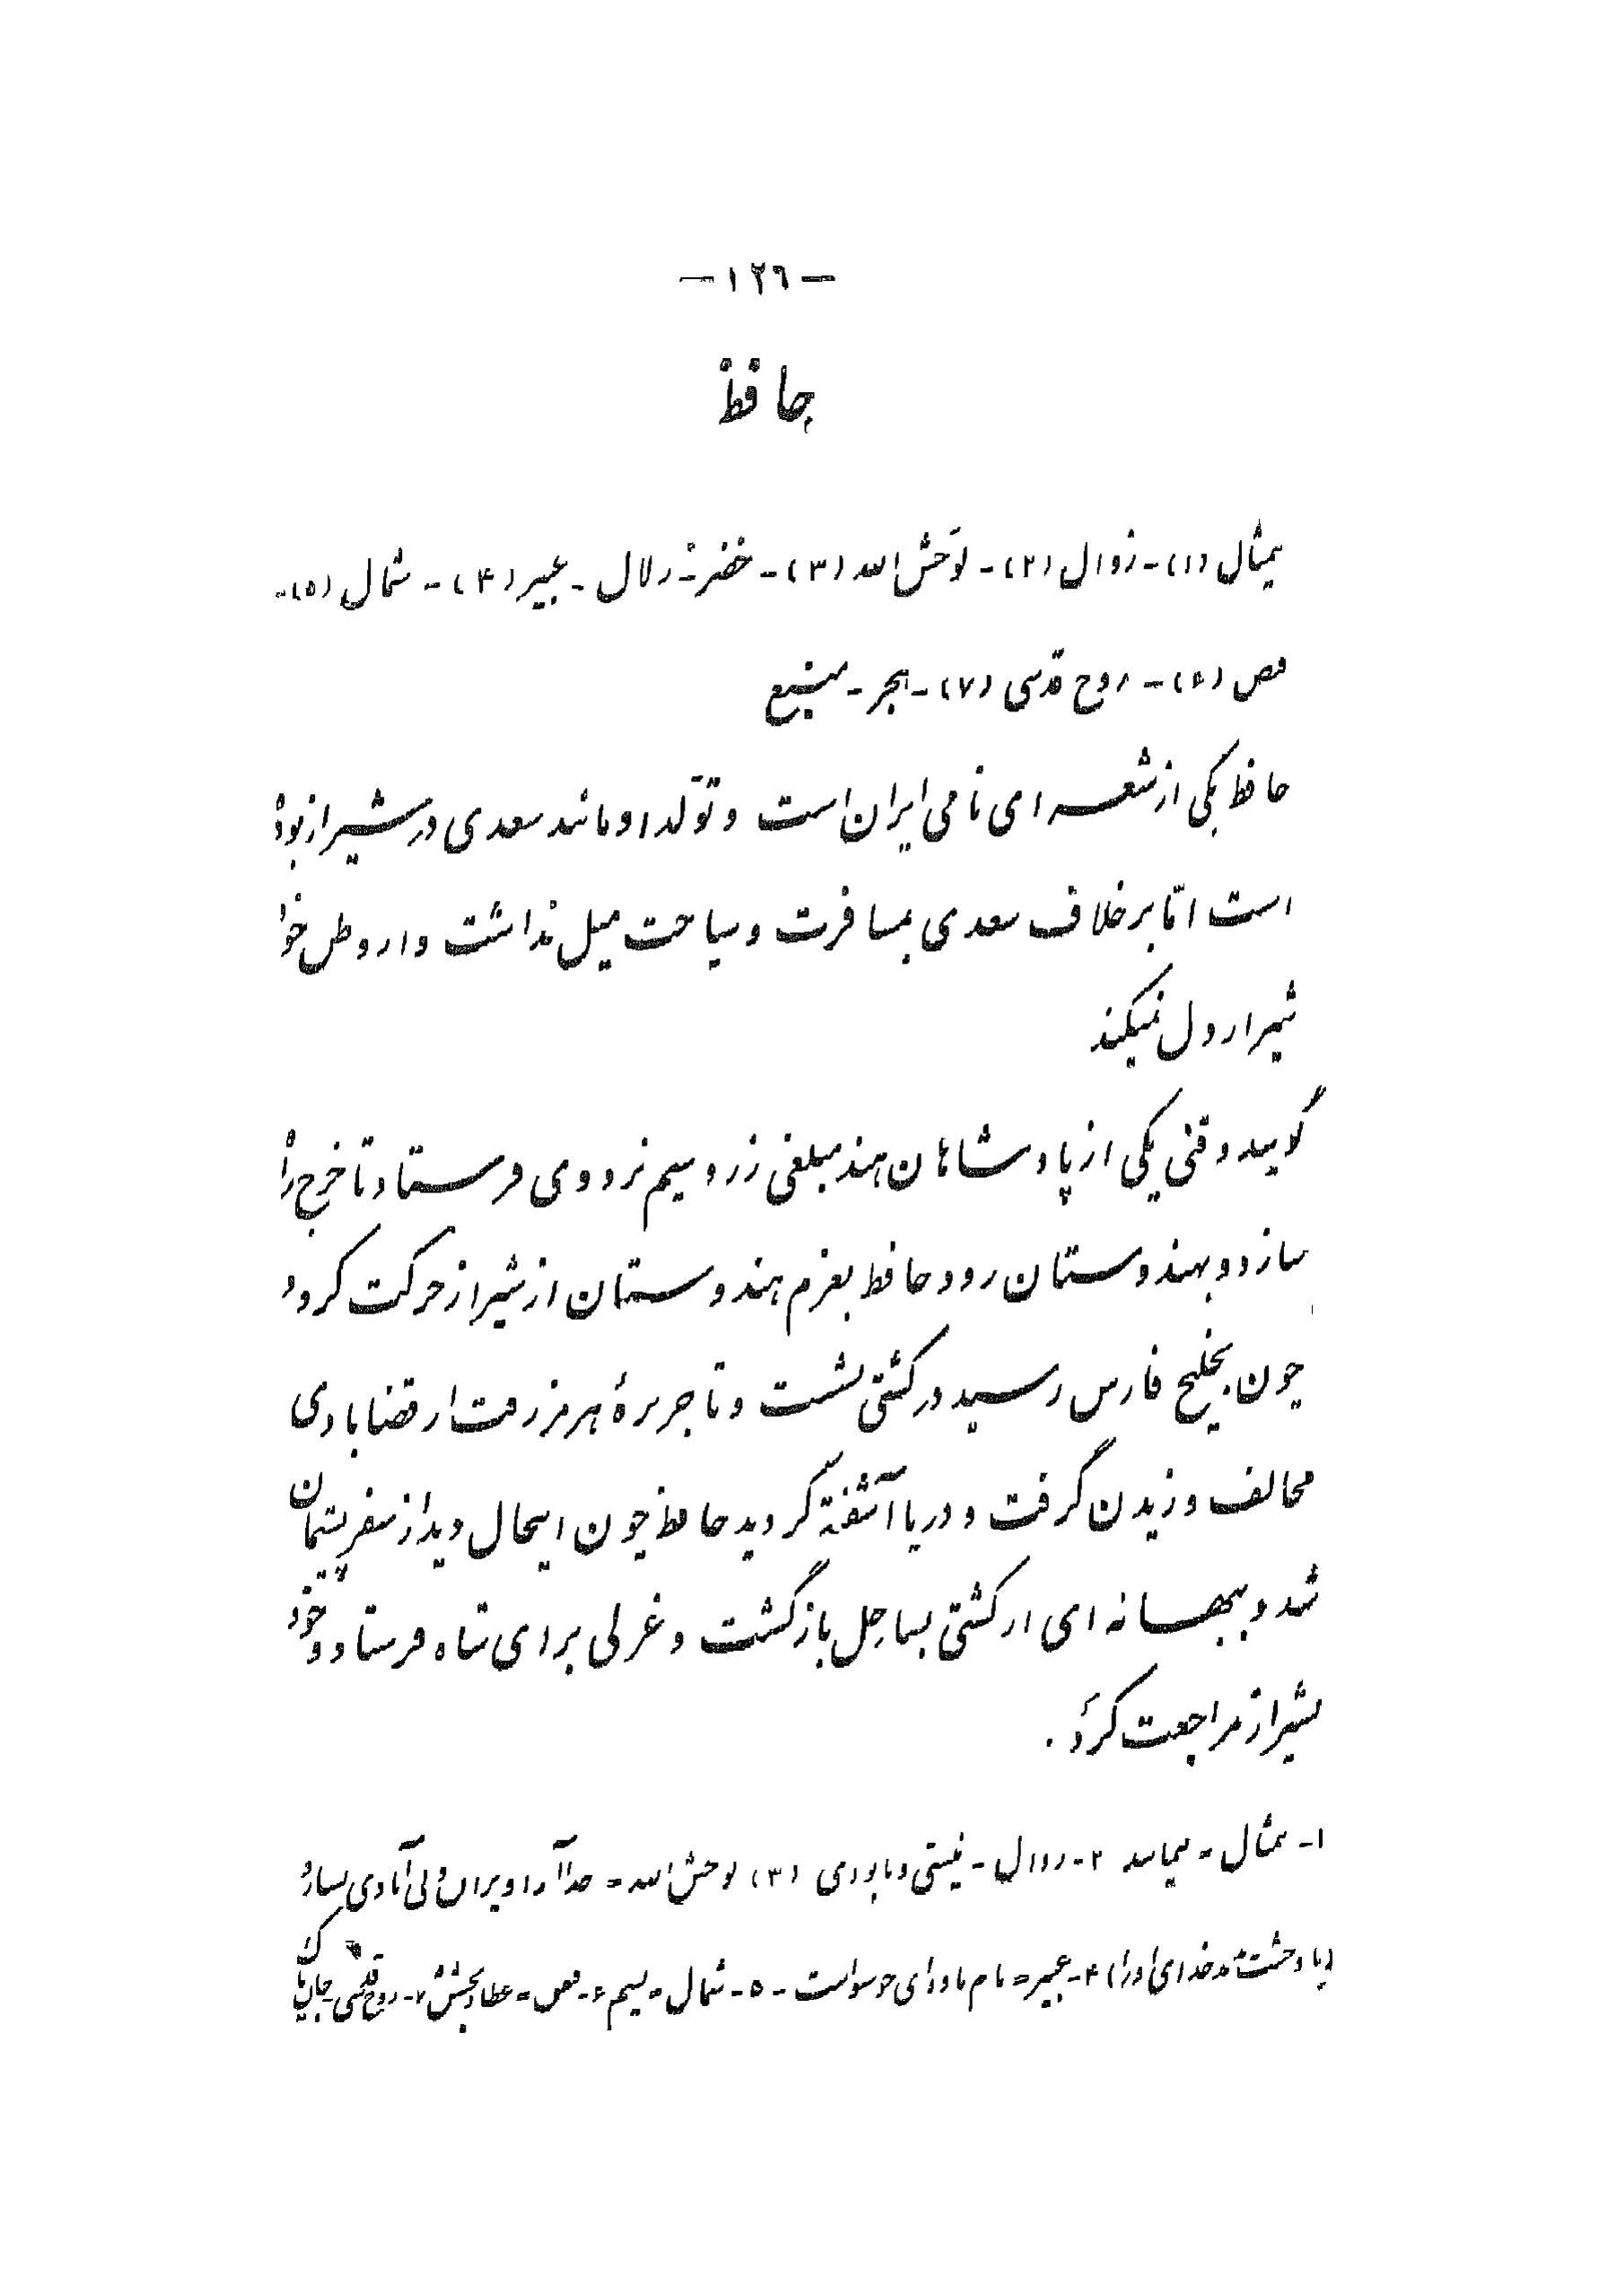 — ١٢٦ —
حافظ
بیمثال (۱) - زوال (۲) - لوَحش‌الله (۳) - خضر - زلال - عبیر (۴) - شمال (۵) -
فیض (۶) - روح قدسی (۷) - هجر - منبع
حافظ یکی از شعرای نامی ایران است و تولّد او مانند سعدی در شیراز بوده
است امّا بر خلاف سعدی بمسافرت و سیاحت میل نداشت و از وطن خود
شیراز دل نمیکند
گویند وقتی یکی از پادشاهان هند مبلغی زر و سیم نزد وی فرستاد تا خرج راه
سازد و بهندوستان رود حافظ بعزم هندوستان از شیراز حرکت کرد و
چون بخلیج فارس رسید در کشتی نشست و تا جزیرهٔ هرمز رفت از قضا بادی
مخالف وزیدن گرفت و دریا آشفته گردید حافظ چون اینحال دید از سفر پشیمان
شد و ببهانه‌ای از کشتی بساحل بازگشت و غزلی برای شاه فرستاد و خود
بشیراز مراجعت کرد .
۱- بیمثال - بیمانند ۲- زوال - نیستی و نابودی (۳) لوحش‌الله = خدا آنرا ویران و بی آبادی نسازد
(یا وحشت ندهد خدای اورا) ۴- عبیر = نام ماده‌ای خوشبو است - ۵- شمال = نسیم ۶- فیض = عطا و بخشش ۷- روح قدسی جان پاک